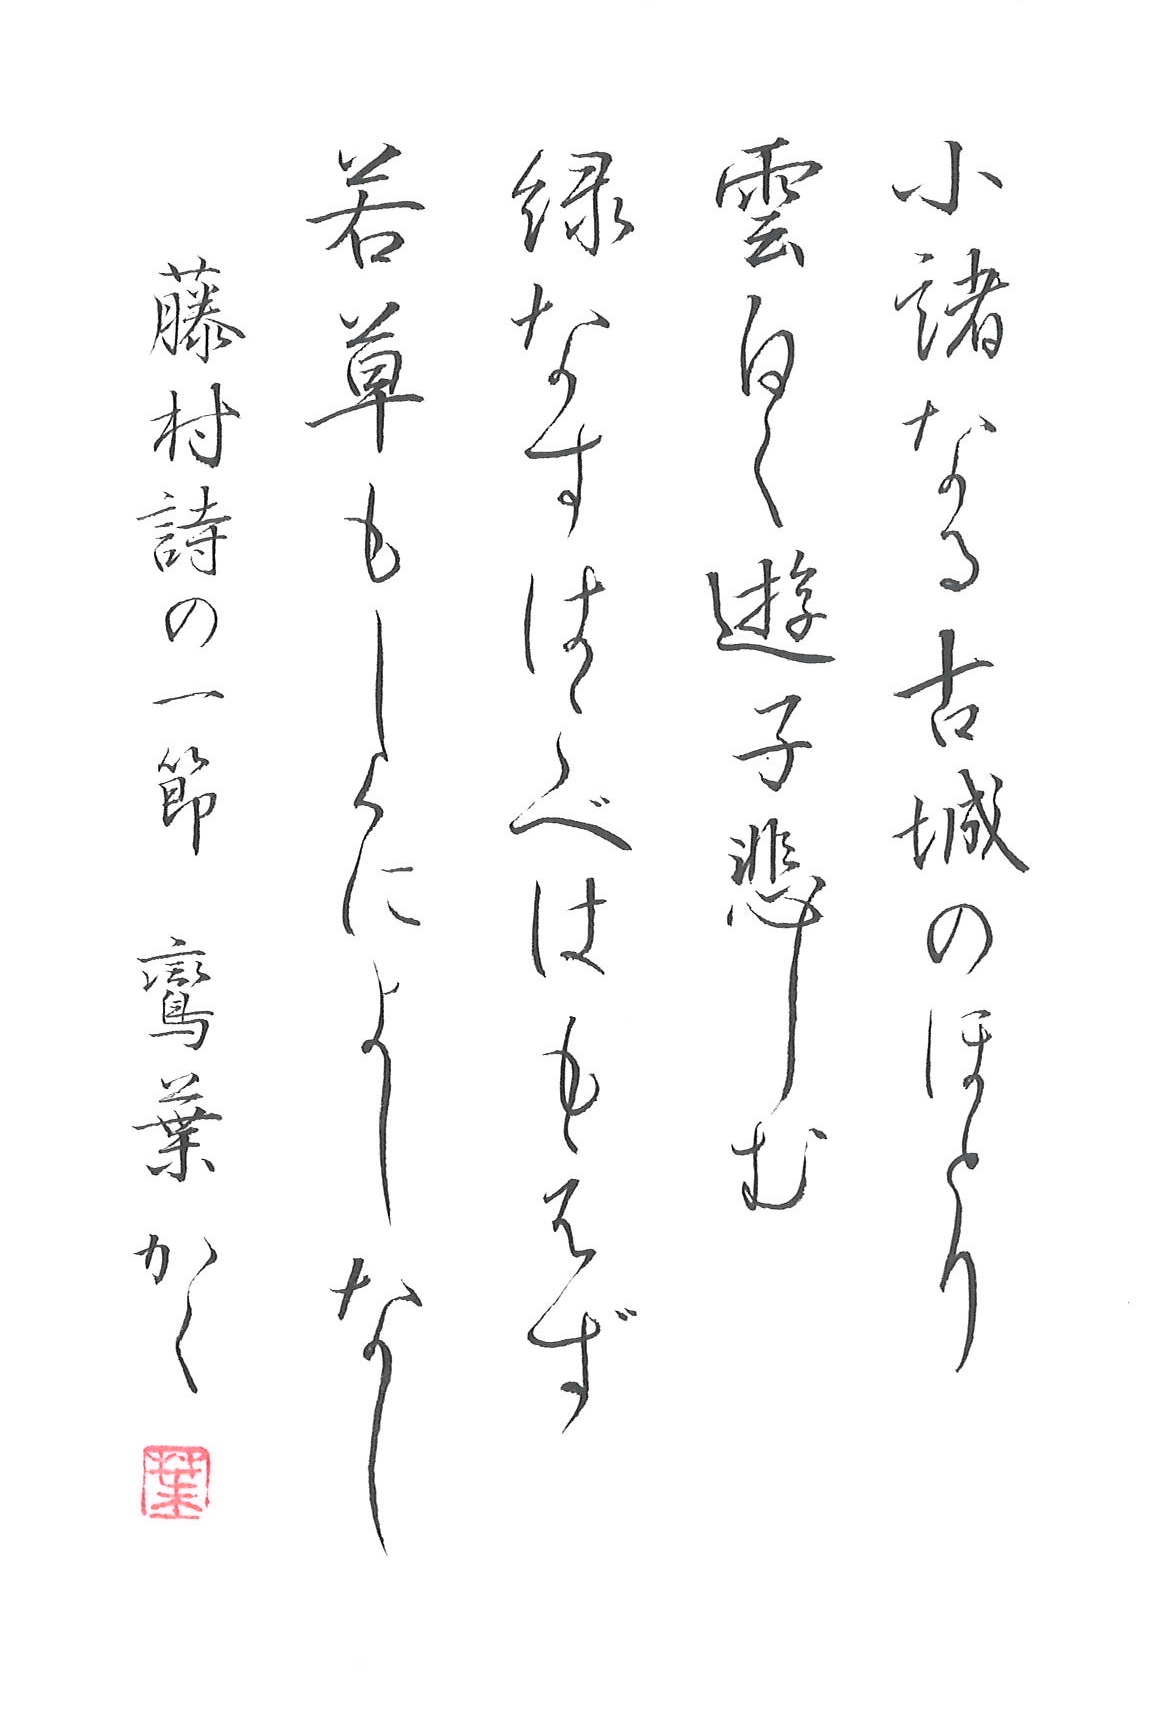 小諸なる古城のほとり
雲白く遊子悲しむ
緑なすはこべはもえず
若草もしくによしなし
藤村詩の一節 鸞葉かく
葉